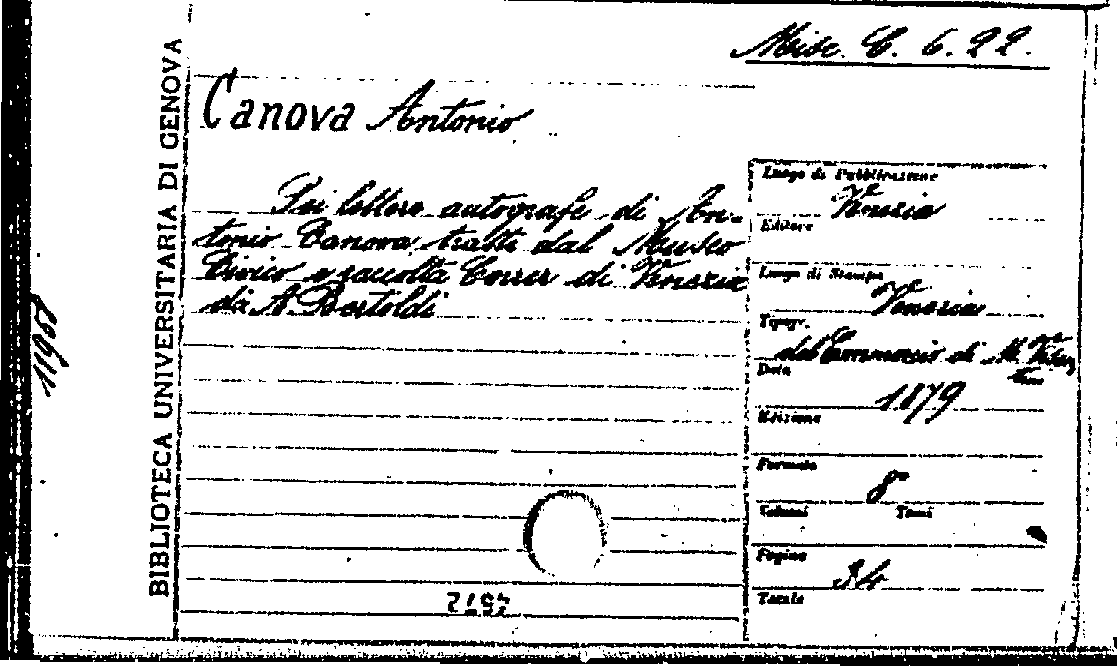 Misc. C. 6. 22.
Canova Antonio
Sei lettere autografe di An-
tonio Canova, tratte dal Museo
Civico e raccolta Correr di Venezia
da A. Bertoldi
Luogo di Pubblicazione
Venezia
Editore
Luogo di Stampa
Venezia
Tipogr.
del Commercio di M.
Data
1879
Edizione
Formato
8°
Volumi Tomi
Pagine
34
Tavole
BIBLIOTECA UNIVERSITARIA DI GENOVA
11961